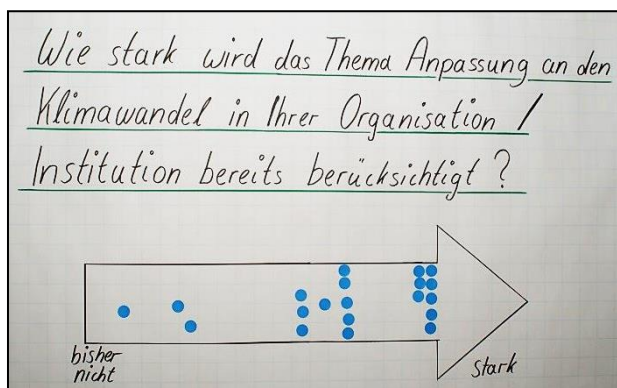 Wie stark wird das Thema Anpassung an den
Klimawandel in Ihrer Organisation /
Institution bereits berücksichtigt ?
bisher
nicht
stark